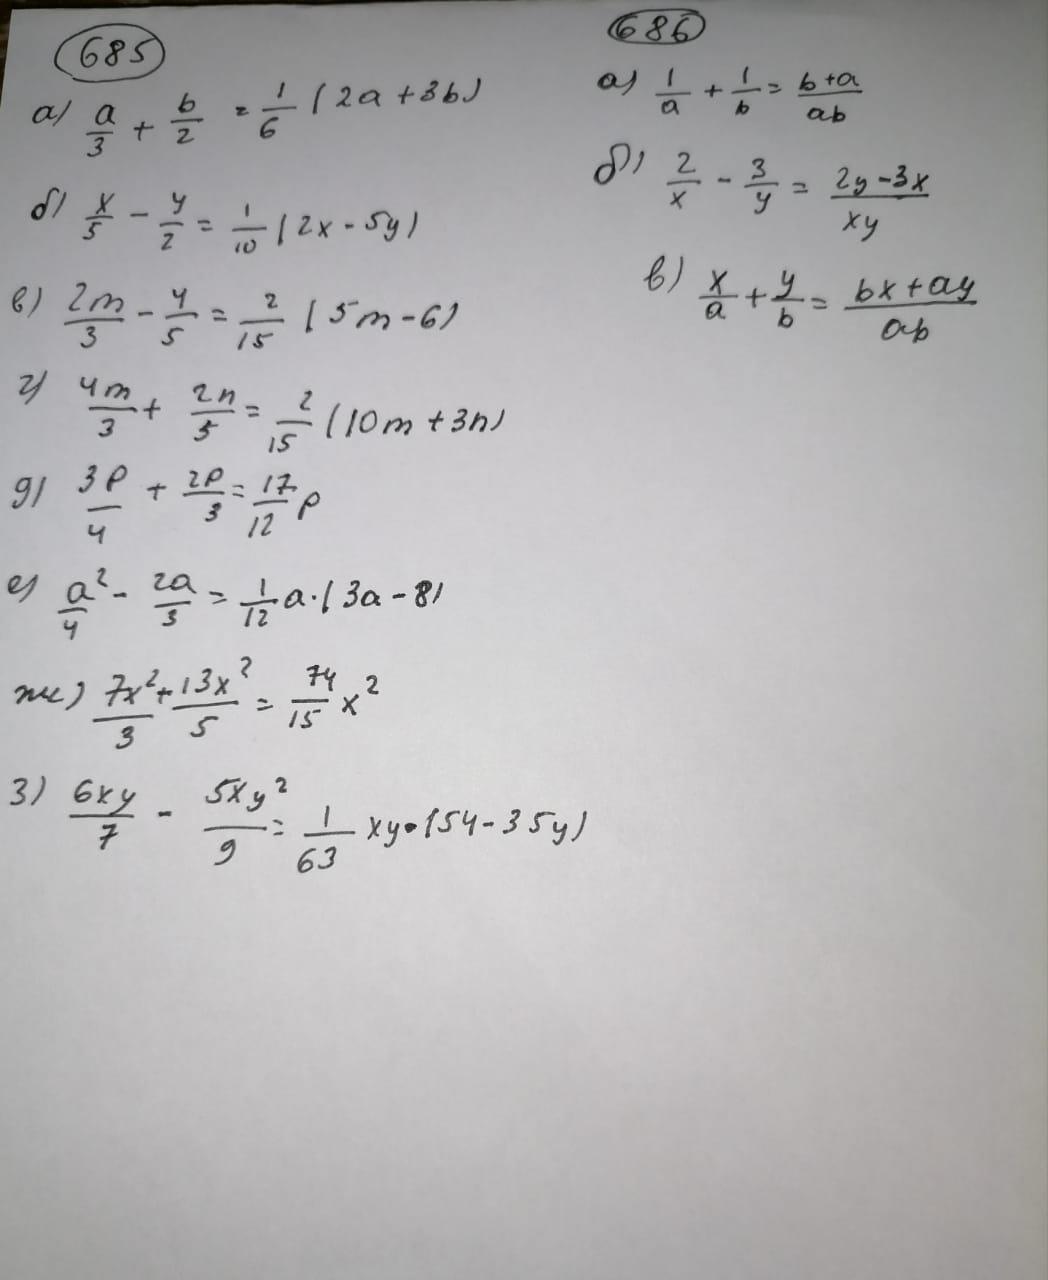 685
а) a/3 + b/2 = 1/6 (2a+3b)
б) x/5 - y/2 = 1/10 (2x-5y)
в) 2m/3 - 4/5 = 2/15 (5m-6)
г) 4m/3 + 2n/5 = 2/15 (10m+3n)
д) 3p/4 + 2p/3 = 17/12 p
е) a²/4 - 2a/3 = 1/12 a·(3a-8)
ж) 7x²/3 + 13x²/5 = 74/15 x²
з) 6xy/7 - 5xy²/9 = 1/63 xy·(54-35y)
686
а) 1/a + 1/b = b+a/ab
б) 2/x - 3/y = 2y-3x/xy
в) x/a + y/b = bx+ay/ab